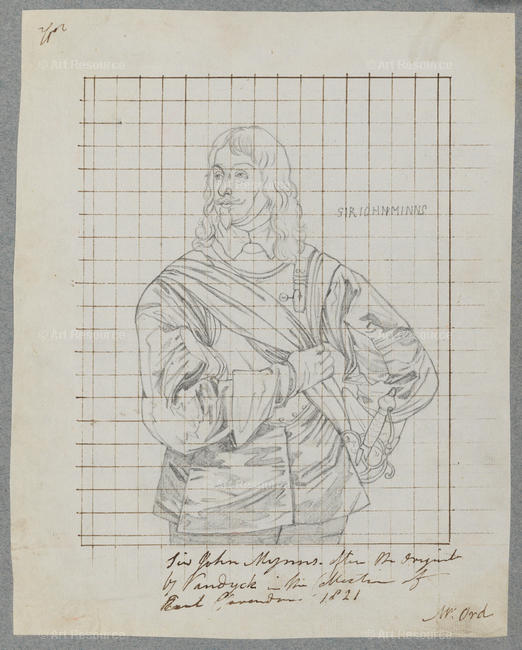 SIR IOHN MINNS
Sir John Mynns. after the original
by Vandyck in the Collection of
Earl Clarendon 1821
Mr. Ord
© Art Resource
© Art Resource
© Art Resource
© Art Resource
© Art Resource
© Art Resource
© Art Resource
© Art Resource